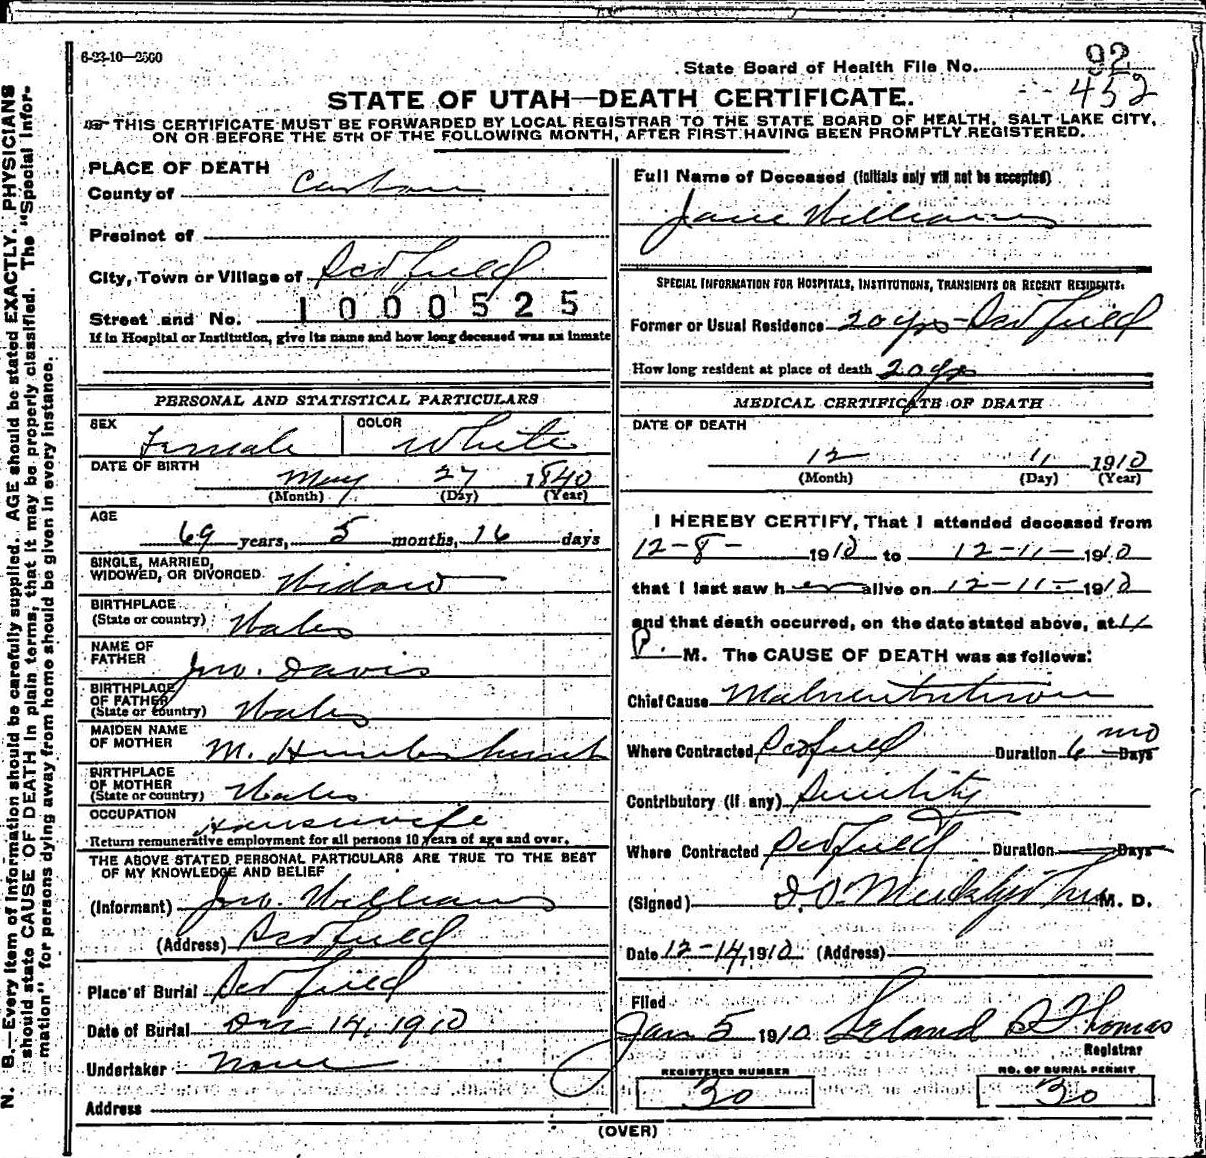 6-23-10—2500
State Board of Health File No. 92
452
STATE OF UTAH—DEATH CERTIFICATE.
THIS CERTIFICATE MUST BE FORWARDED BY LOCAL REGISTRAR TO THE STATE BOARD OF HEALTH, SALT LAKE CITY,
ON OR BEFORE THE 5TH OF THE FOLLOWING MONTH, AFTER FIRST HAVING BEEN PROMPTLY REGISTERED.
N. B.—Every item of information should be carefully supplied. AGE should be stated EXACTLY. PHYSICIANS
should state CAUSE OF DEATH in plain terms, that it may be properly classified. The "Special Infor-
mation" for persons dying away from home should be given in every instance.
PLACE OF DEATH
County of Carbon
Precinct of
City, Town or Village of Scofield
Street and No. 1000525
If in Hospital or Institution, give its name and how long deceased was an inmate
PERSONAL AND STATISTICAL PARTICULARS
SEX Female COLOR White
DATE OF BIRTH May 27 1840
(Month) (Day) (Year)
AGE
69 years, 5 months, 16 days
SINGLE, MARRIED,
WIDOWED, OR DIVORCED Widow
BIRTHPLACE
(State or country) Wales
NAME OF
FATHER Jno. Davis
BIRTHPLACE
OF FATHER
(State or country) Wales
MAIDEN NAME
OF MOTHER M.
BIRTHPLACE
OF MOTHER
(State or country) Wales
OCCUPATION Housewife
Return remunerative employment for all persons 10 years of age and over.
THE ABOVE STATED PERSONAL PARTICULARS ARE TRUE TO THE BEST
OF MY KNOWLEDGE AND BELIEF
(Informant) Jno. Williams
(Address) Scofield
Place of Burial Scofield
Date of Burial Dec 14, 1910
Undertaker None
Address
Full Name of Deceased (Initials only will not be accepted)
Jane Williams
SPECIAL INFORMATION FOR HOSPITALS, INSTITUTIONS, TRANSIENTS OR RECENT RESIDENTS.
Former or Usual Residence 20 yrs - Scofield
How long resident at place of death 20 yrs
MEDICAL CERTIFICATE OF DEATH
DATE OF DEATH
12 11 1910
(Month) (Day) (Year)
I HEREBY CERTIFY, That I attended deceased from
12-8- 1910 to 12-11- 1910
that I last saw her alive on 12-11- 1910
and that death occurred, on the date stated above, at 11
P. M. The CAUSE OF DEATH was as follows:
Chief Cause Malnutrition
Where Contracted Scofield Duration 6 mo Days
Contributory (if any) Senility
Where Contracted Scofield Duration Days
(Signed) M. D.
Date 12-14, 1910 (Address)
Filed
Jan 5 1910 Leland S Thomas
Registrar
REGISTERED NUMBER
30
NO. OF BURIAL PERMIT
30
(OVER)